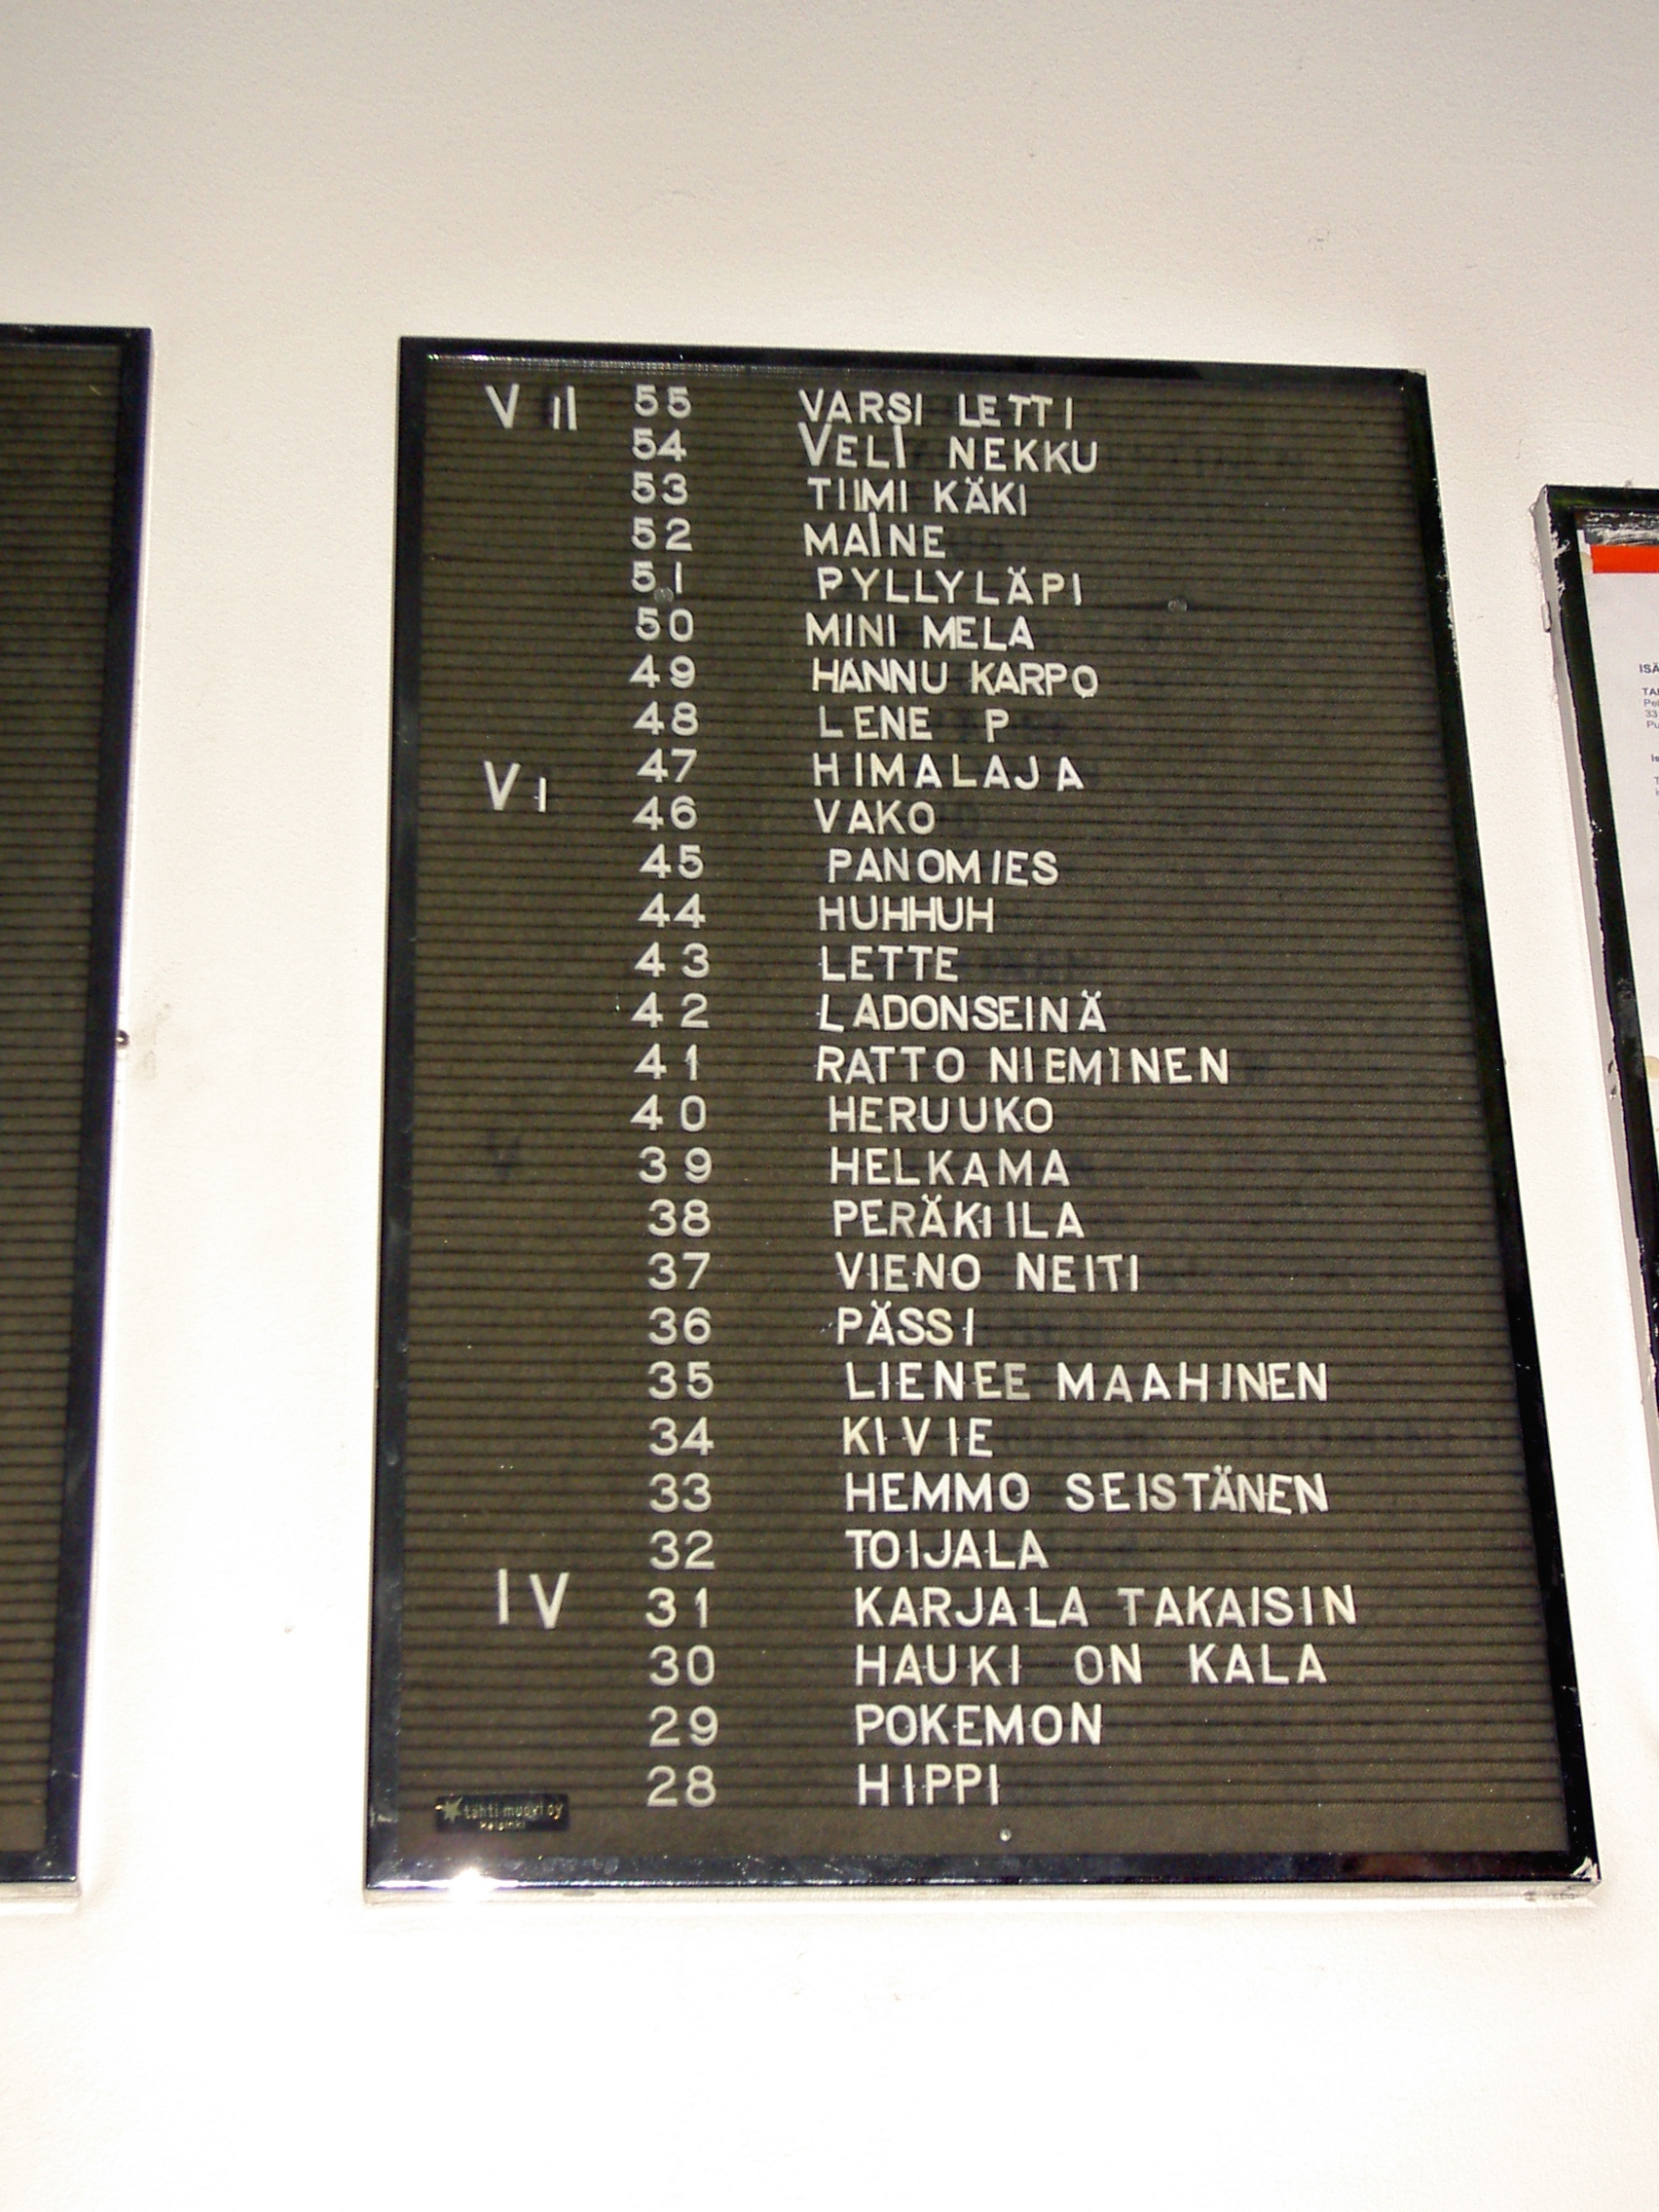 VII 55 VARSI LETTI
54 VELI NEKKU
53 TIIMI KÄKI
52 MAINE
51 PYLLYLÄPI
50 MINI MELA
49 HANNU KARPO
48 LENE P
47 HIMALAJA
VI 46 VAKO
45 PANOMIES
44 HUHHUH
43 LETTE
42 LADONSEINÄ
41 RATTO NIEMINEN
40 HERUUKO
39 HELKAMA
38 PERÄKIILA
37 VIENO NEITI
36 PÄSSI
35 LIENEE MAAHINEN
34 KIVIE
33 HEMMO SEISTÄNEN
32 TOIJALA
IV 31 KARJALA TAKAISIN
30 HAUKI ON KALA
29 POKEMON
28 HIPPI
tähti-muovi oy
Helsinki